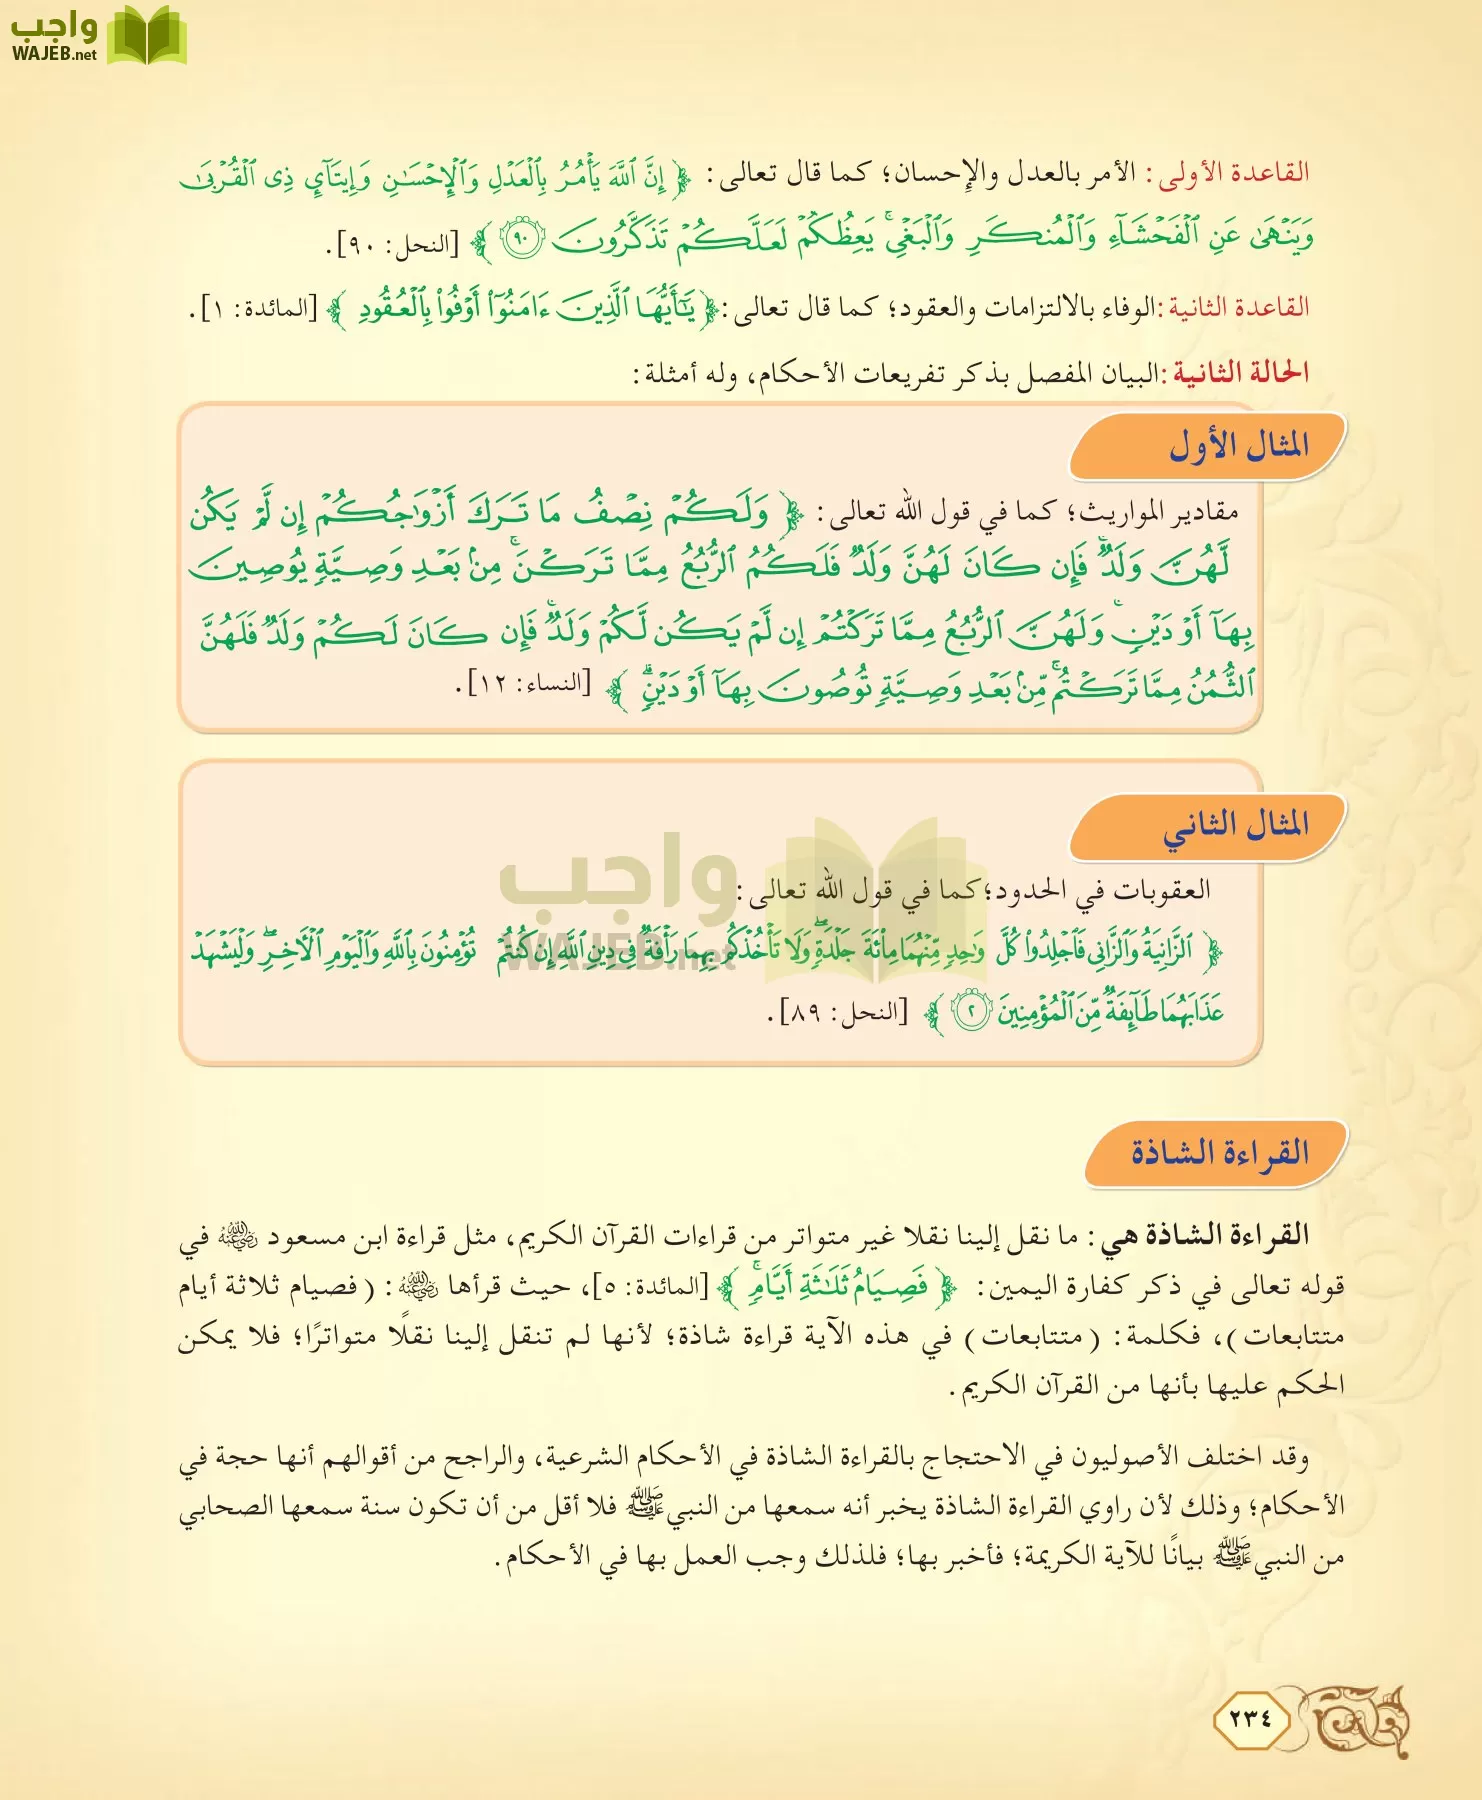 واجب
WAJEB.net
القاعدة الأولى: الأمر بالعدل والإحسان؛ كما قال تعالى: ﴿ إِنَّ ٱللَّهَ يَأْمُرُ بِٱلْعَدْلِ وَٱلْإِحْسَٰنِ وَإِيتَآيِٕ ذِى ٱلْقُرْبَىٰ
وَيَنْهَىٰ عَنِ ٱلْفَحْشَآءِ وَٱلْمُنكَرِ وَٱلْبَغْىِ ۚ يَعِظُكُمْ لَعَلَّكُمْ تَذَكَّرُونَ ٩٠ ﴾ [النحل: ٩٠].
القاعدة الثانية: الوفاء بالالتزامات والعقود؛ كما قال تعالى: ﴿ يَٰٓأَيُّهَا ٱلَّذِينَ ءَامَنُوٓا۟ أَوْفُوا۟ بِٱلْعُقُودِ ﴾ [المائدة: ١].
الحالة الثانية: البيان المفصل بذكر تفريعات الأحكام، وله أمثلة:
المثال الأول
مقادير المواريث؛ كما في قول الله تعالى: ﴿ وَلَكُمْ نِصْفُ مَا تَرَكَ أَزْوَٰجُكُمْ إِن لَّمْ يَكُن
لَّهُنَّ وَلَدٌ ۚ فَإِن كَانَ لَهُنَّ وَلَدٌ فَلَكُمُ ٱلرُّبُعُ مِمَّا تَرَكْنَ ۚ مِنۢ بَعْدِ وَصِيَّةٍ يُوصِينَ
بِهَآ أَوْ دَيْنٍ ۚ وَلَهُنَّ ٱلرُّبُعُ مِمَّا تَرَكْتُمْ إِن لَّمْ يَكُن لَّكُمْ وَلَدٌ ۚ فَإِن كَانَ لَكُمْ وَلَدٌ فَلَهُنَّ
ٱلثُّمُنُ مِمَّا تَرَكْتُم ۚ مِّنۢ بَعْدِ وَصِيَّةٍ تُوصُونَ بِهَآ أَوْ دَيْنٍ ۗ ﴾ [النساء: ١٢].
المثال الثاني
العقوبات في الحدود؛ كما في قول الله تعالى:
﴿ ٱلزَّانِيَةُ وَٱلزَّانِى فَٱجْلِدُوا۟ كُلَّ وَٰحِدٍ مِّنْهُمَا مِا۟ئَةَ جَلْدَةٍ ۖ وَلَا تَأْخُذْكُم بِهِمَا رَأْفَةٌ فِى دِينِ ٱللَّهِ إِن كُنتُمْ تُؤْمِنُونَ بِٱللَّهِ وَٱلْيَوْمِ ٱلْءَاخِرِ ۖ وَلْيَشْهَدْ
عَذَابَهُمَا طَآئِفَةٌ مِّنَ ٱلْمُؤْمِنِينَ ٢ ﴾ [النحل: ٨٩].
واجب
WAJEB.net
القراءة الشاذة
القراءة الشاذة هي: ما نقل إلينا نقلا غير متواتر من قراءات القرآن الكريم، مثل قراءة ابن مسعود رضي الله عنه في
قوله تعالى في ذكر كفارة اليمين: ﴿ فَصِيَامُ ثَلَٰثَةِ أَيَّامٍ ۚ ﴾ [المائدة: ٥]، حيث قرأها رضي الله عنه: (فصيام ثلاثة أيام
متتابعات)، فكلمة: (متتابعات) في هذه الآية قراءة شاذة؛ لأنها لم تنقل إلينا نقلًا متواترًا؛ فلا يمكن
الحكم عليها بأنها من القرآن الكريم.
وقد اختلف الأصوليون في الاحتجاج بالقراءة الشاذة في الأحكام الشرعية، والراجح من أقوالهم أنها حجة في
الأحكام؛ وذلك لأن راوي القراءة الشاذة يخبر أنه سمعها من النبي ﷺ فلا أقل من أن تكون سنة سمعها الصحابي
من النبي ﷺ بيانًا للآية الكريمة؛ فأخبر بها؛ فلذلك وجب العمل بها في الأحكام.
٢٣٤